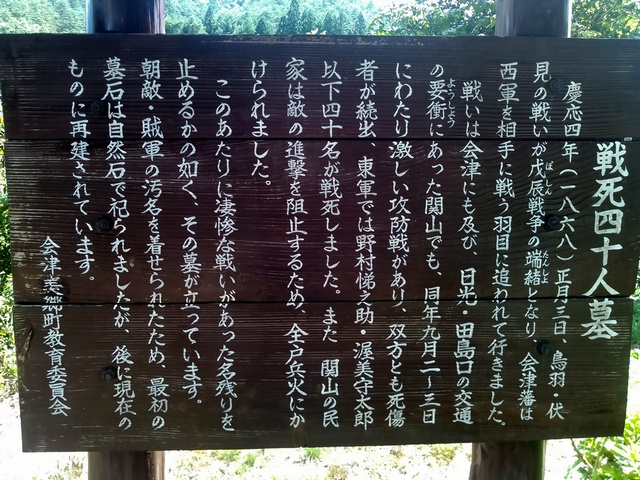 戦死四十人墓
慶応四年(一八六八)正月三日、鳥羽・伏
見の戦いが戊辰戦争の端緒となり、会津藩は
西軍を相手に戦う羽目に追われて行きました。
戦いは会津にも及び、日光・田島口の交通
の要衝にあった関山でも、同年九月二~三日
にわたり激しい攻防戦があり、双方とも死傷
者が続出、東軍では野村悌之助・渥美守太郎
以下四十名が戦死しました。また 関山の民
家は敵の進撃を阻止するため、全戸兵火にか
けられました。
このあたりに凄惨な戦いがあった名残りを
止めるかの如く、その墓が立っています。
朝敵・賊軍の汚名を着せられたため、最初の
墓石は自然石で祀られましたが、後に現在の
ものに再建されています。
会津美郷町教育委員会